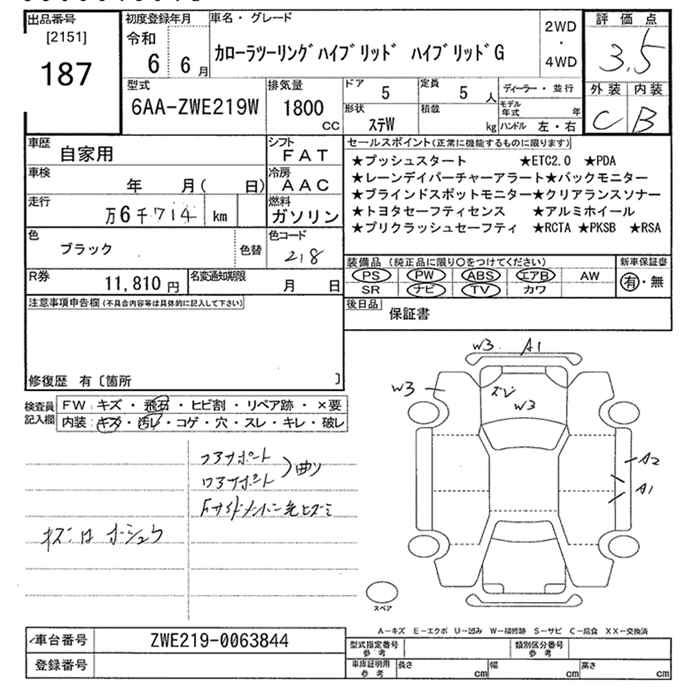 出品番号 初度登録年月 車名・グレード 評価点
[2151] 令和 2WD
187 6 6月 カローラツーリングハイブリッド ハイブリッドG ・ 3.5
4WD
型式 排気量 ドア 5 定員 5人 ディーラー・並行 外装 内装
6AA-ZWE219W 1800cc 形状 ステW 積載 kg モデル年式 年 C B
ハンドル 左・右
車歴 自家用 シフト FAT セールスポイント(正常に機能するものに限ります)
車検 年 月( 日) 冷房 AAC ★プッシュスタート ★ETC2.0 ★PDA
★レーンディパーチャーアラート★バックモニター
走行 万6千714km 燃料 ガソリン ★ブラインドスポットモニター★クリアランスソナー
★トヨタセーフティセンス ★アルミホイール
色 ブラック 色替 色コード 218 ★プリクラッシュセーフティ ★RCTA ★PKSB ★RSA
装備品(純正品に限り○をつけてください) 新車保証書
R券 11,810円 名変通知期限 月 日 PS PW ABS エアB AW 有・無
SR ナビ TV カワ
注意事項申告欄(不具合内容等は具体的に記入して下さい) 後日品 保証書
修復歴 有〔箇所 〕
検査員記入欄 FW:キズ・飛石・ヒビ割・リペア跡・×要
内装:キズ・汚レ・コゲ・穴・スレ・キレ・破レ
W3 A1
W3
W3
A2
A1
コアサポート
曲り
スペア
A-キズ E-エクボ U-凹み W-補修跡 S-サビ C-腐食 XX-交換済
車台番号 ZWE219-0063844 型式指定番号 参考 類別区分番号 参考
登録番号 車庫証明用 参考 長さ cm 幅 cm 高さ cm